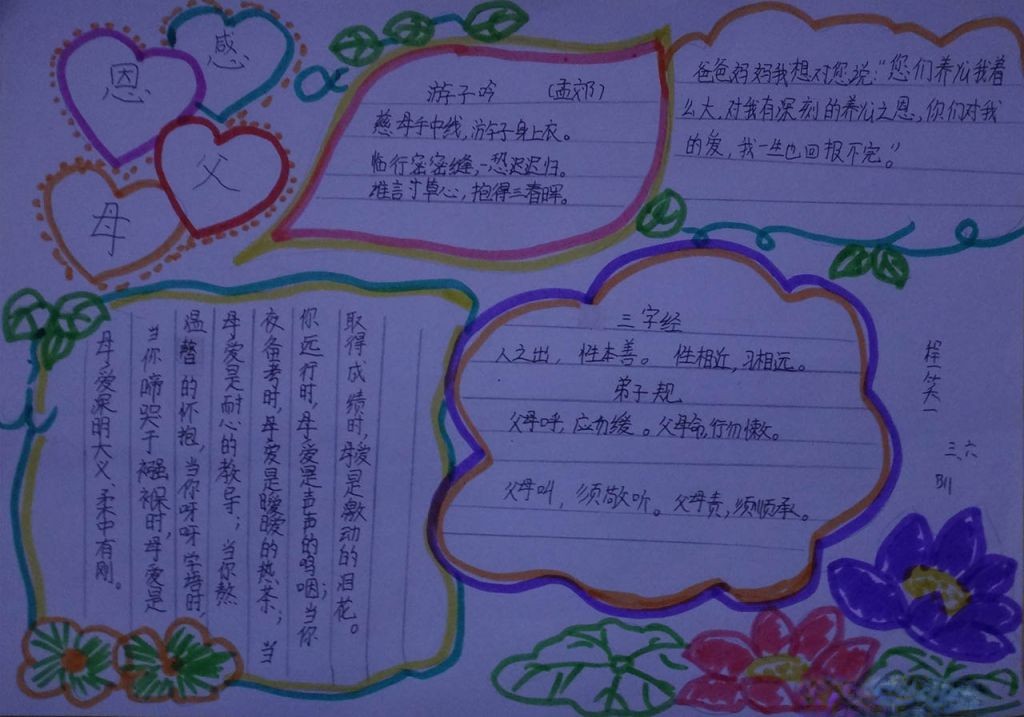 感
恩
父
母
游子吟 (孟郊)
慈母手中线,游子身上衣。
临行密密缝,一恐迟迟归。
谁言寸草心,抱得三春晖。
爸爸妈妈我想对您说:“您们养儿我着
么大,对我有深刻的养儿之恩,你们对我
的爱,我一生也回报不完。”
三字经
人之出,性本善。性相近,习相远。
弟子规
父母呼,应勿缓。父母命,行勿懒。
父母叫,须敬听。父母责,须顺承。
母爱深明大义、柔中有刚。
当你啼哭于襁褓时,母爱是
温馨的怀抱,当你呀呀学语时,
母爱是耐心的教导;当你熬
夜备考时,母爱是暖暖的热茶;当
你远行时,母爱是声声的呜咽;当你
取得成绩时,母爱是激动的泪花。
笑一
三、六